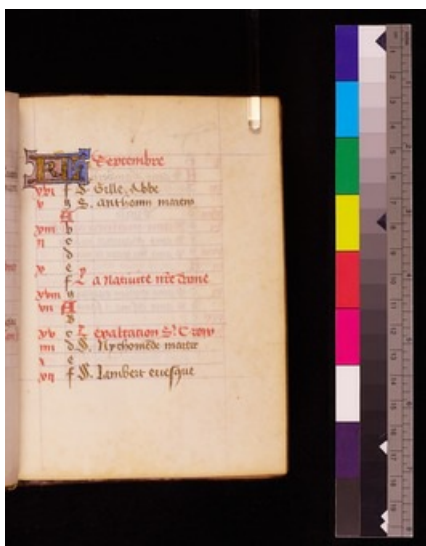 KL Septembre
xvi f S. Gille Abbe
v g S. anthonin martir
A
xiii b
ii c
d
x e
f La natiuite nre dame
xviii g
vii A
b
xv c L exaltation S. Croix
iiii d S. Nychomede martir
e
xii f S. Lambert euesque